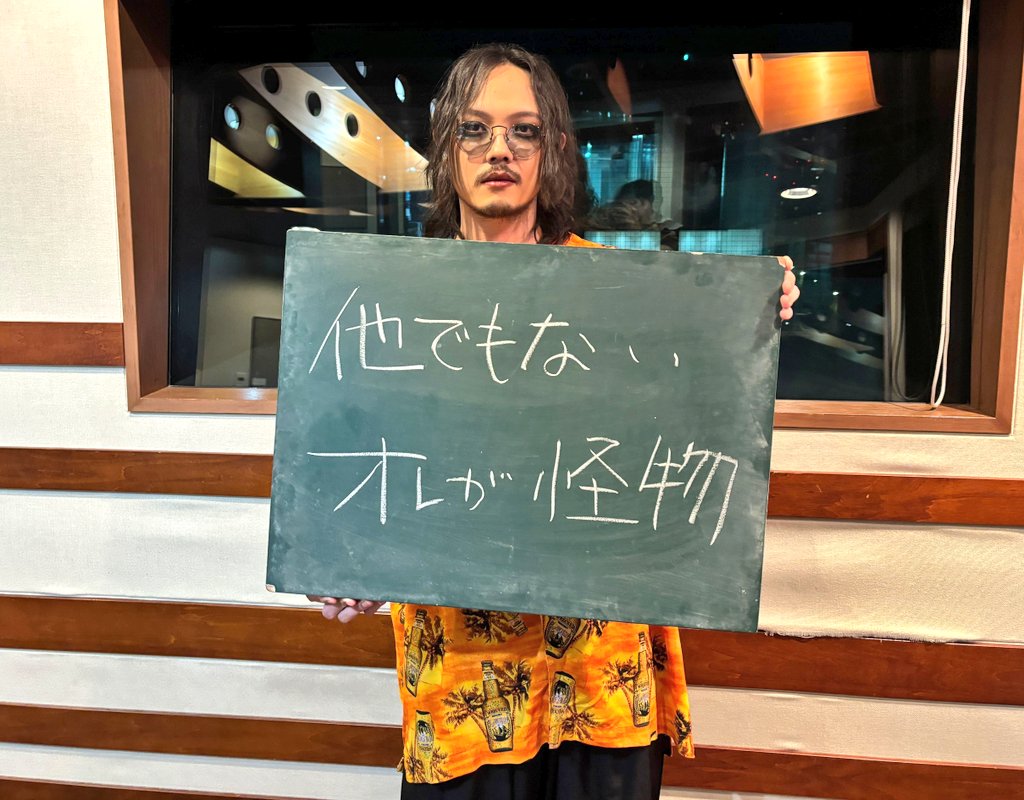 他でもない、、
オレが怪物